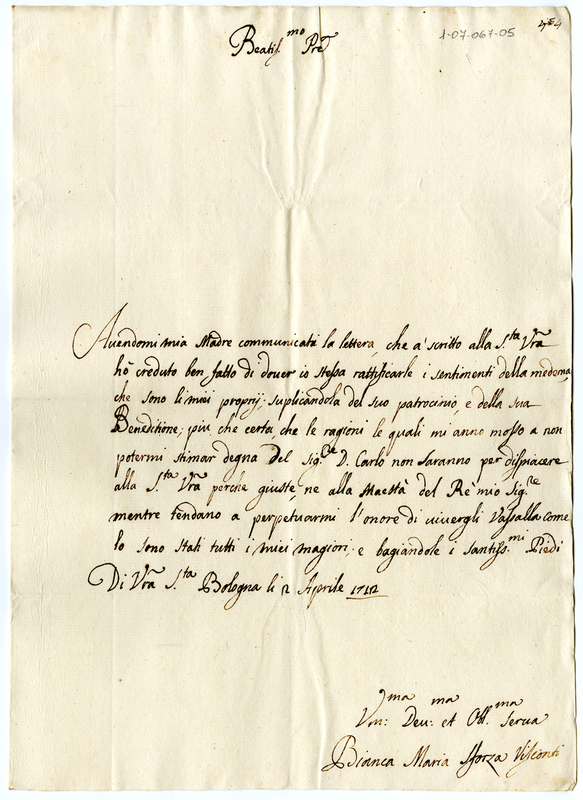 1-07-067-05
Beatis.mo Pre
Auendomi mia Madre communicata la lettera, che a' scritto alla S.ta Vra
hò creduto ben fatto di douer io stessa rattificarle i sentimenti della medema,
che sono li miei proprij, suplicandola del suo patrocinio, e della sua
Beneditione; più che certa, che le ragioni le quali mi anno mosso a non
potermi stimar degna del Sig.re D. Carlo non saranno per dispiacere
alla S.ta Vra perche giuste, ne alla Maestà del Rè mio Sig.re
mentre tendano a perpetuarmi l'onore di uiuergli Vassalla come
lo sono stati tutti i miei magiori, e bagiandole i santiss.mi Piedi
Di Vra S.ta Bologna li 2 Aprile 1712
Vm:ma Deu:ma et Obl.ma Serua
Bianca Maria Sforza Visconti